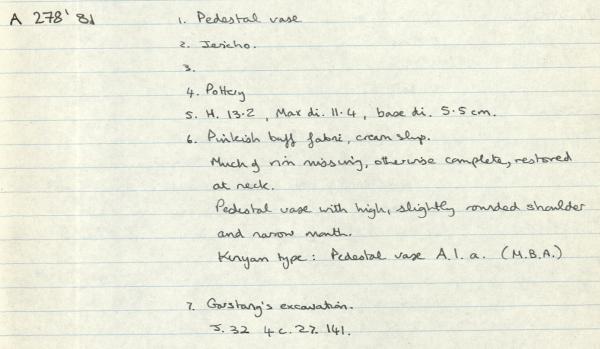 A 278'81
1. Pedestal vase
2. Jericho.
3.
4. Pottery
5. H. 13.2, Max di. 11.4, base di. 5.5 cm.
6. Pinkish buff fabric, cream slip.
Much of rim missing, otherwise complete, restored
at neck.
Pedestal vase with high, slightly rounded shoulder
and narrow mouth.
Kenyan type: Pedestal vase A.1.a. (M.B.A.)
7. Garstang's excavation.
J. 32 4c. 27. 141.